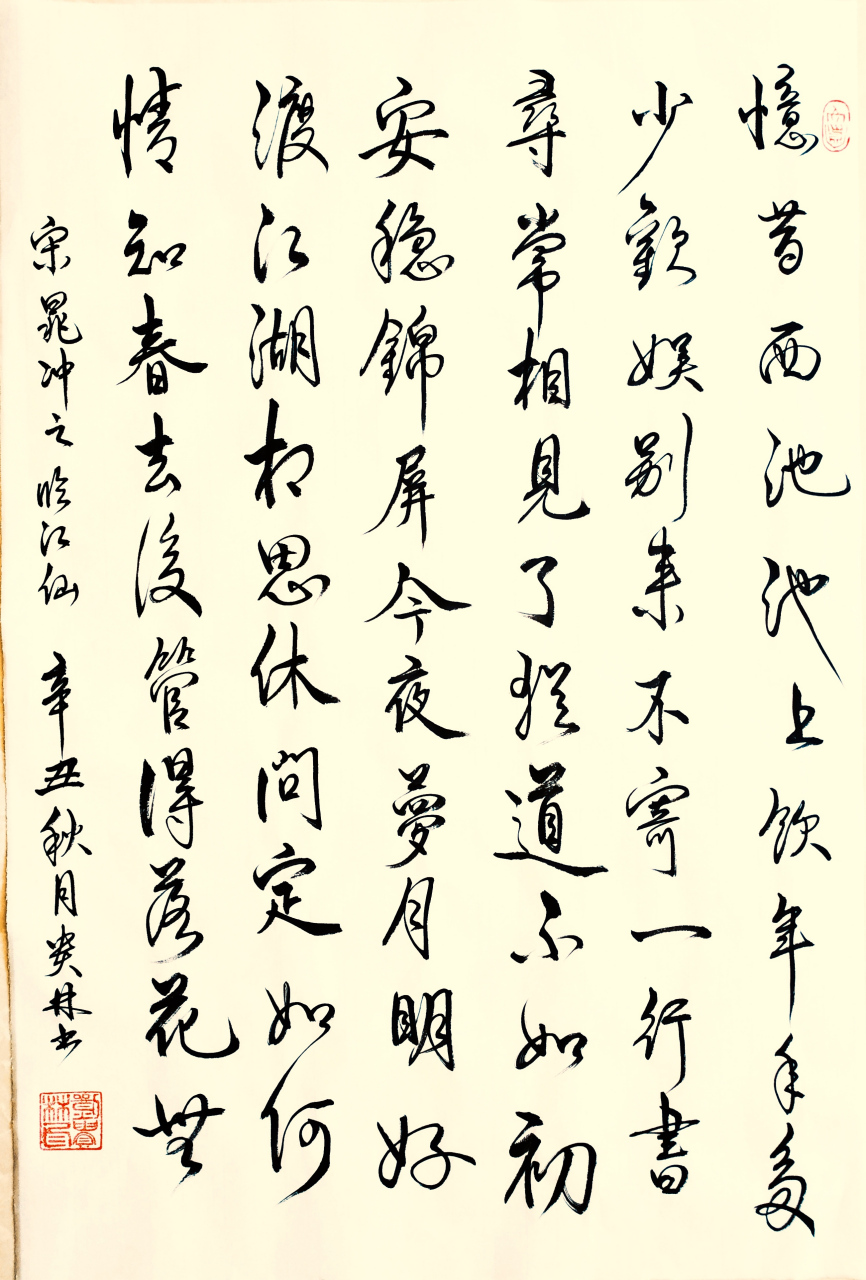 憶昔西池池上飲年年多
少歡娱别来不寄一行書
尋常相見了猶道不如初
安稳錦屏今夜夢月明好
渡江湖相思休問定如何
情知春去後管得落花無
宋晁冲之临江仙 辛丑秋月贵林书
劉貴林印